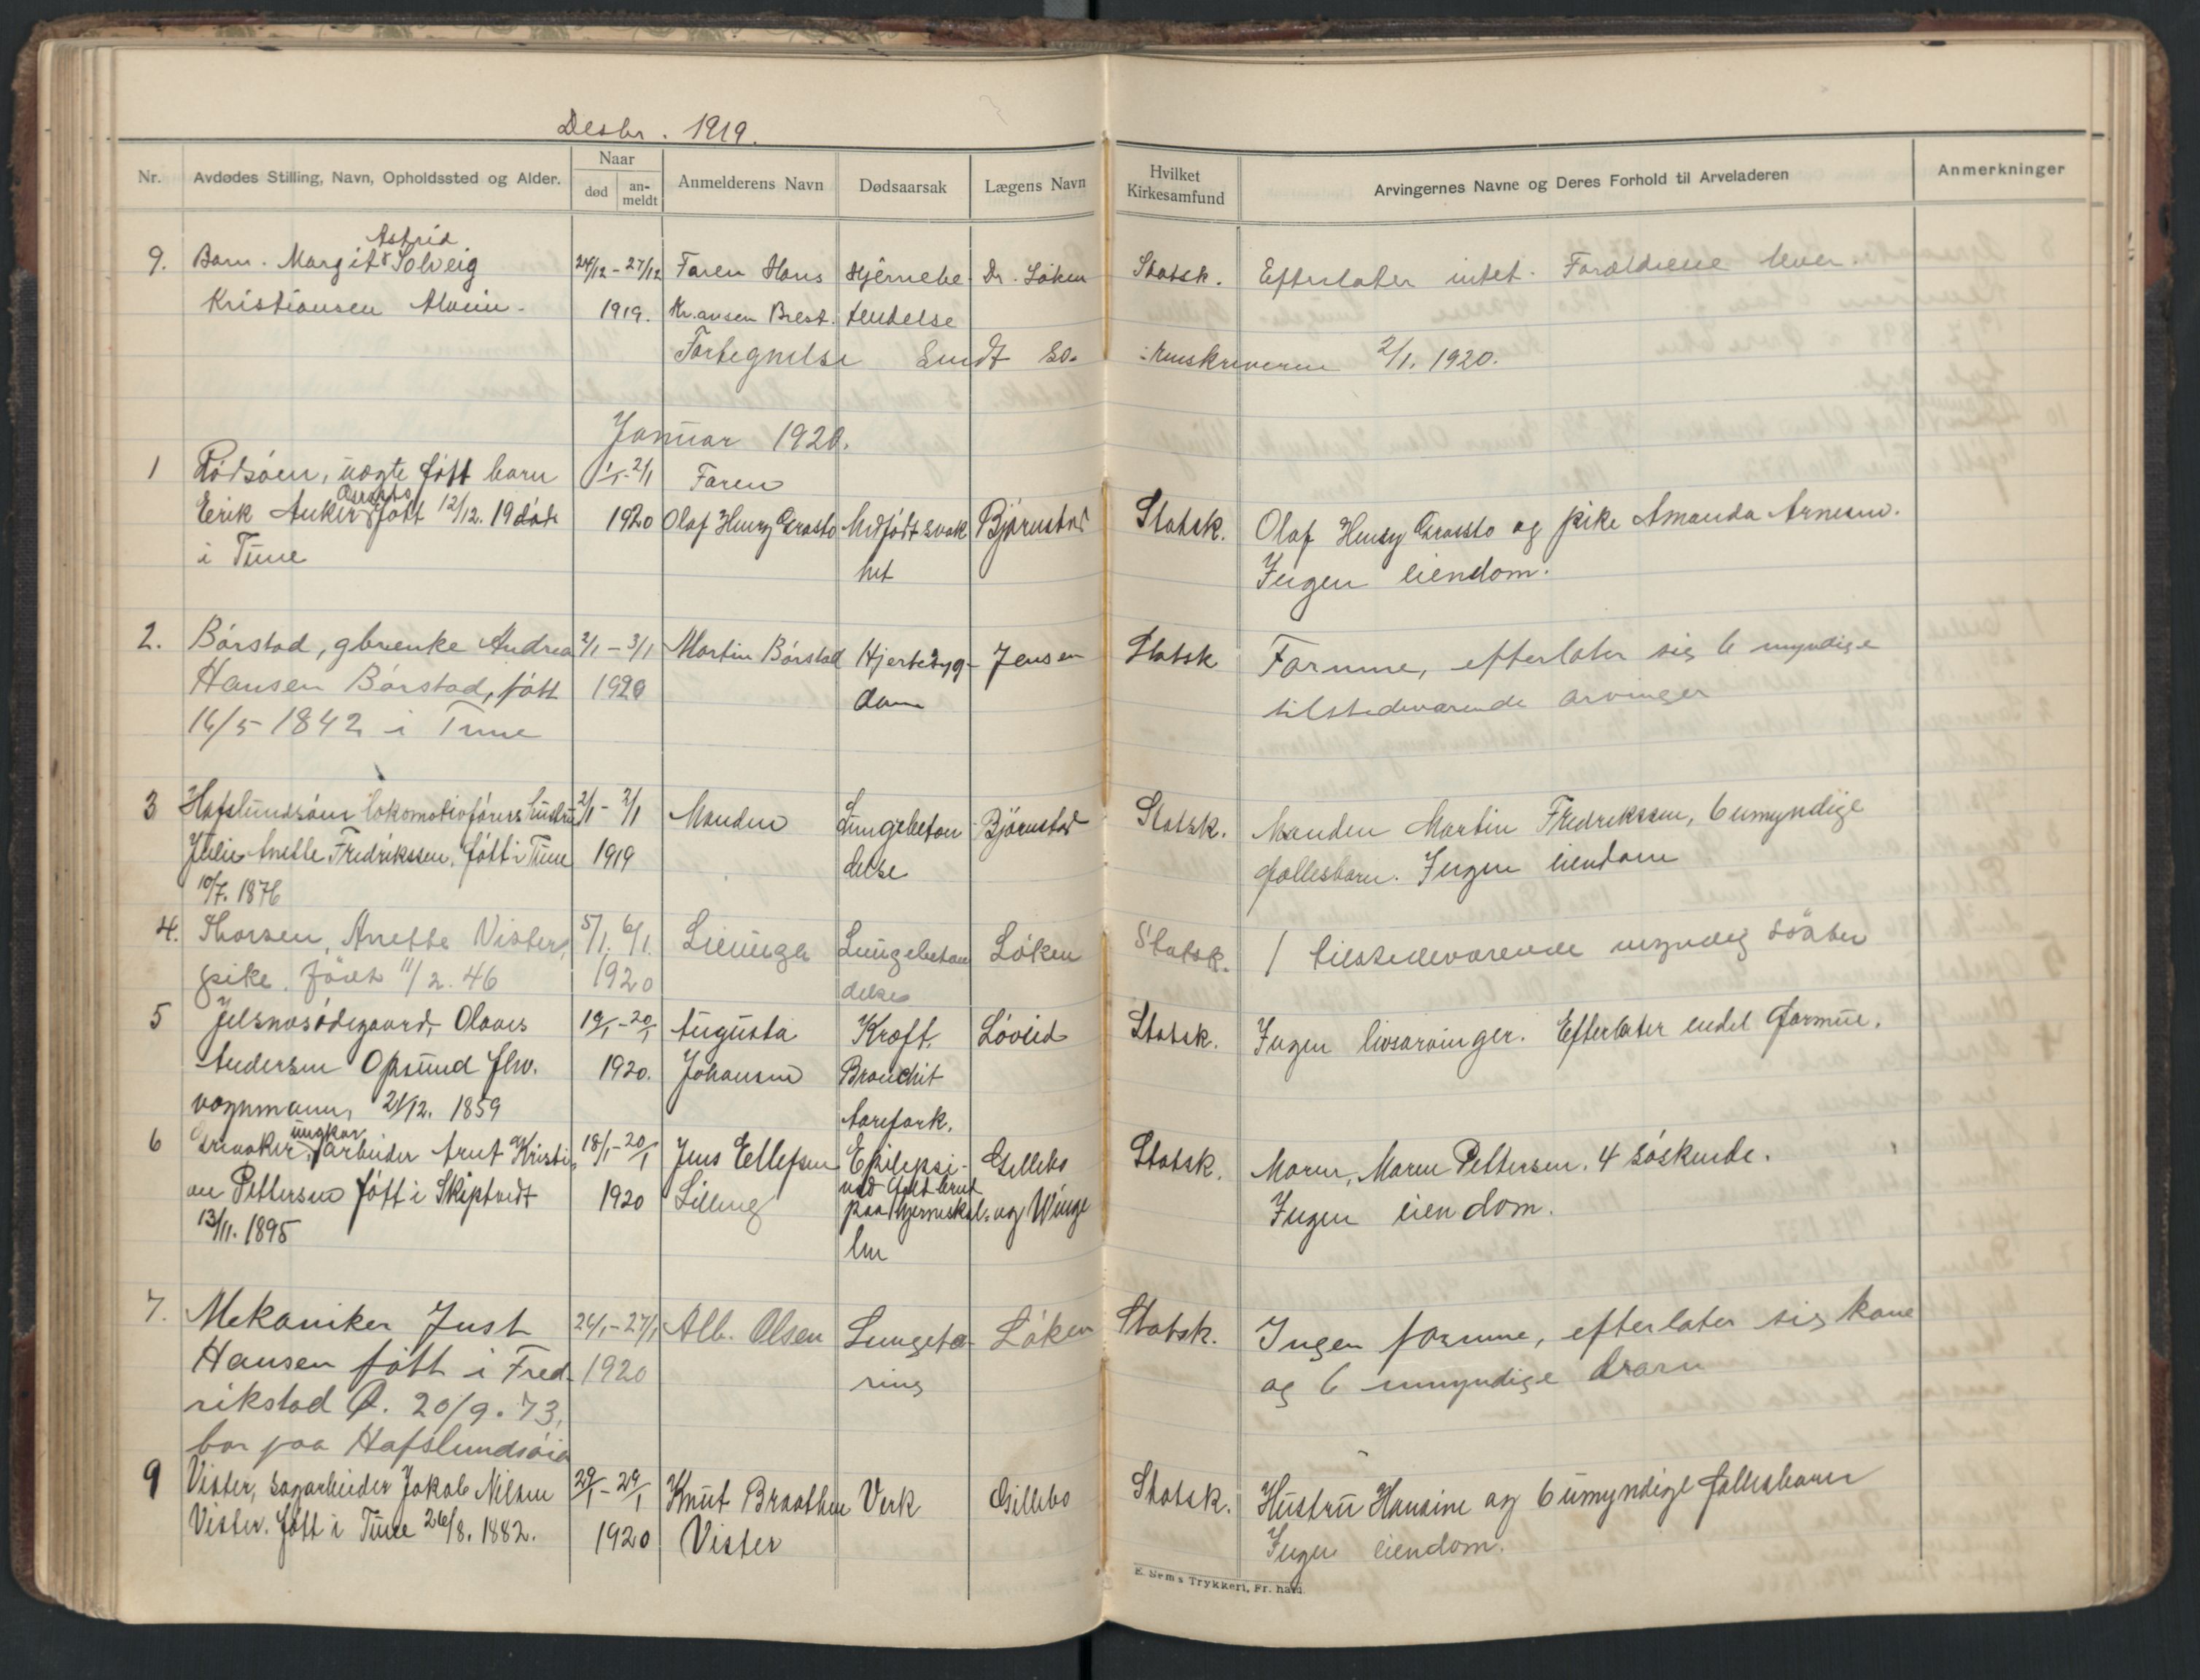 Desbr. 1919.
Nr. Avdødes Stilling, Navn, Opholdssted og Alder. Naar død an-meldt Anmelderens Navn Dødsaarsak Lægens Navn Hvilket Kirkesamfund Arvingernes Navne og Deres Forhold til Arveladeren Anmerkninger
Astrid
9. Barn. Margit & Solveig 24/12 - 27/12 Faren Hans Hjernebe- Dr. Løken Statsk. Efterlater intet. Forældrene lever.
Kristiansen Alvim. 1919. Kr.ansen Brest. tendelse
Fortegnelse sendt So-renskriveren 2/1. 1920.
Januar 1920.
1 Rødsøen, uægte født barn 1/1-2/1 Faren
Graasto
Erik Anker født 12/12. 19 død 1920 Olaf Henry Grasto Medfødt svak Bjørnstad Statsk. Olaf Henry Graasto og pike Amanda Arnesen.
i Tune het Ingen eiendom.
2. Børstad, gbrenke Andrea 2/1 - 3/1 Martin Børstad Hjertesyg- Jensen Statsk Formue, efterlater sig 6 myndige
Hansen Børstad, født 1920 dom tilstedeværende arvinger
16/5 1842 i Tune
3 Hafslundsøen lokomotivførers hustru 2/1 - 3/1 Manden Lungebeten- Bjørnstad Statsk. Manden Martin Fredrikssen, 6 umyndige
Julie Anette Fredrikssen, født i Tune 1919 delse fællesbarn. Ingen eiendom
10/7. 1876
4. Thorsen, Anette Vister, 5/1. 6/1. Lungebetæn Løken Statsk. 1 tilstedeværende myndig datter
pike. født 11/2. 46 1920 delse
5 Olaves 19/1-20/1 Augusta Kroft. Løvlid Statsk. Ingen livsarvinger. Efterlater endel formue.
Andersen Opsund fhv. 1920. Johansen Bronchit
vognmann, 21/12. 1859 Aarefork.
ungkar
6 Greaaker, arbeider Arnt Kristi- 18/1-20/1 Jens Ellefsen Epilepsi- Gillebo Statsk. Moren, Maren Pettersen. 4 søskende.
an Pettersen født i Skiptvedt 1920 Lilleng ved brud paa hjerneskal- og Winge Ingen eiendom.
13/11. 1895 len
7. Mekaniker Just 26/1-27/1 Alb. Olsen Lungetæ- Løken Statsk. Ingen formue, efterlater sig kone
Hansen født i Fred- 1920 ring og 6 umyndige barn
rikstad Ø. 20/9. 73,
bor paa Hafslundsøia
9 Vister, sagarbeider Jakob Nilsen 29/1-29/1 Knut Braathen Verk Gillebo Statsk. Hustru Hansine og 6 umyndige fællesbarn
Vister. født i Tune 26/8. 1882. 1920 Vister Ingen eiendom.
E. Sem's Trykkeri, Fr. hald